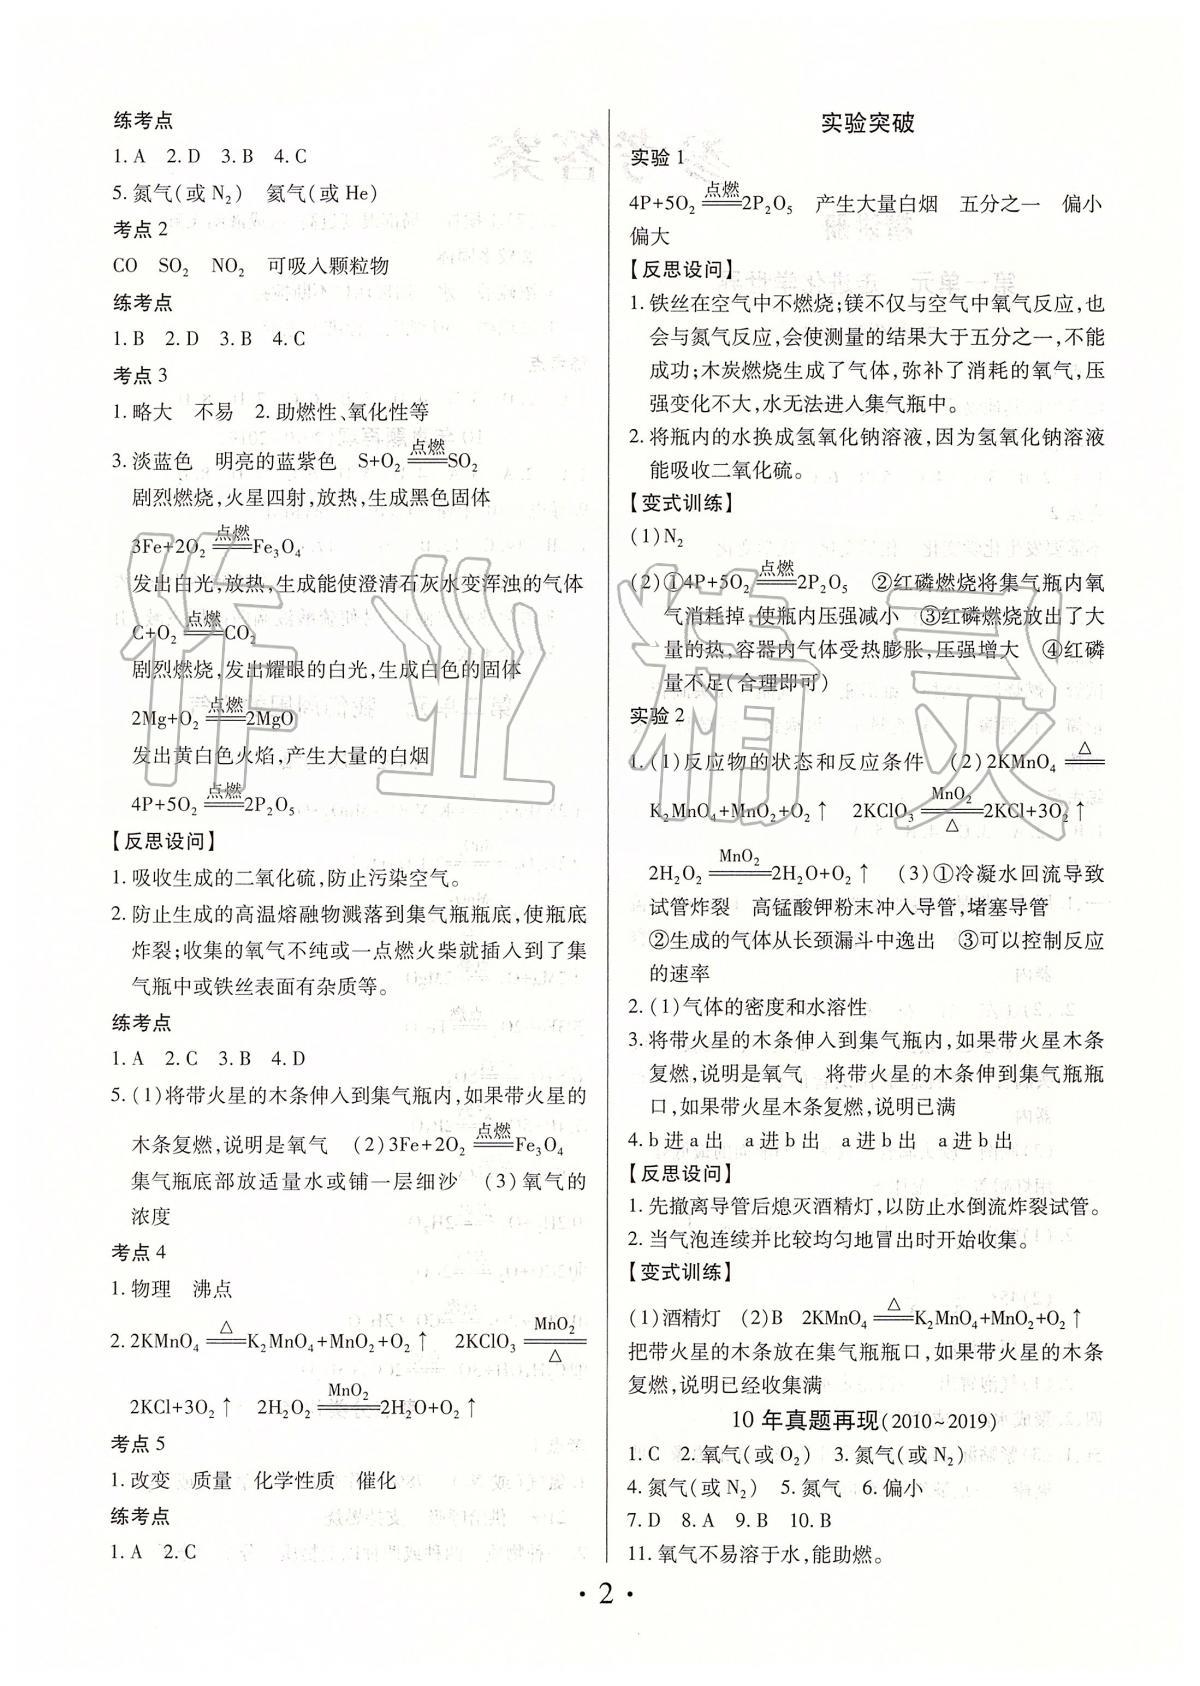 练考点
1. A　2. D　3. B　4. C
5. 氮气(或 N₂)　氦气(或 He)
考点 2
CO　SO₂　NO₂　可吸入颗粒物
练考点
1. B　2. D　3. B　4. C
考点 3
1. 略大　不易　2. 助燃性、氧化性等
3. 淡蓝色　明亮的蓝紫色　S+O₂ =点燃= SO₂
剧烈燃烧,火星四射,放热,生成黑色固体
3Fe+2O₂ =点燃= Fe₃O₄
发出白光,放热,生成能使澄清石灰水变浑浊的气体
C+O₂ =点燃= CO₂
剧烈燃烧,发出耀眼的白光,生成白色的固体
2Mg+O₂ =点燃= 2MgO
发出黄白色火焰,产生大量的白烟
4P+5O₂ =点燃= 2P₂O₅
【反思设问】
1. 吸收生成的二氧化硫,防止污染空气。
2. 防止生成的高温熔融物溅落到集气瓶瓶底,使瓶底
炸裂;收集的氧气不纯或一点燃火柴就插入到了集
气瓶中或铁丝表面有杂质等。
练考点
1. A　2. C　3. B　4. D
5. (1)将带火星的木条伸入到集气瓶内,如果带火星的
木条复燃,说明是氧气　(2)3Fe+2O₂ =点燃= Fe₃O₄
集气瓶底部放适量水或铺一层细沙　(3)氧气的
浓度
考点 4
1. 物理　沸点
2. 2KMnO₄ =△= K₂MnO₄+MnO₂+O₂↑　2KClO₃ =MnO₂/△=
2KCl+3O₂↑　2H₂O₂ =MnO₂= 2H₂O+O₂↑
考点 5
1. 改变　质量　化学性质　催化
练考点
1. A　2. C
实验突破
实验 1
4P+5O₂ =点燃= 2P₂O₅　产生大量白烟　五分之一　偏小
偏大
【反思设问】
1. 铁丝在空气中不燃烧;镁不仅与空气中氧气反应,也
会与氮气反应,会使测量的结果大于五分之一,不能
成功;木炭燃烧生成了气体,弥补了消耗的氧气,压
强变化不大,水无法进入集气瓶中。
2. 将瓶内的水换成氢氧化钠溶液,因为氢氧化钠溶液
能吸收二氧化硫。
【变式训练】
(1)N₂
(2)①4P+5O₂ =点燃= 2P₂O₅　②红磷燃烧将集气瓶内氧
气消耗掉,使瓶内压强减小　③红磷燃烧放出了大
量的热,容器内气体受热膨胀,压强增大　④红磷
量不足(合理即可)
实验 2
1. (1)反应物的状态和反应条件　(2)2KMnO₄ =△=
K₂MnO₄+MnO₂+O₂↑　2KClO₃ =MnO₂/△= 2KCl+3O₂↑
2H₂O₂ =MnO₂= 2H₂O+O₂↑　(3)①冷凝水回流导致
试管炸裂　高锰酸钾粉末冲入导管,堵塞导管
②生成的气体从长颈漏斗中逸出　③可以控制反应
的速率
2. (1)气体的密度和水溶性
3. 将带火星的木条伸入到集气瓶内,如果带火星木条
复燃,说明是氧气　将带火星的木条伸到集气瓶瓶
口,如果带火星木条复燃,说明已满
4. b 进 a 出　a 进 b 出　a 进 b 出　a 进 b 出
【反思设问】
1. 先撤离导管后熄灭酒精灯,以防止水倒流炸裂试管。
2. 当气泡连续并比较均匀地冒出时开始收集。
【变式训练】
(1)酒精灯　(2)B　2KMnO₄ =△= K₂MnO₄+MnO₂+O₂↑
把带火星的木条放在集气瓶瓶口,如果带火星的木条
复燃,说明已经收集满
10 年真题再现(2010~2019)
1. C　2. 氧气(或 O₂)　3. 氮气(或 N₂)
4. 氮气(或 N₂)　5. 氮气　6. 偏小
7. D　8. A　9. B　10. B
11. 氧气不易溶于水,能助燃。
· 2 ·
作业精灵